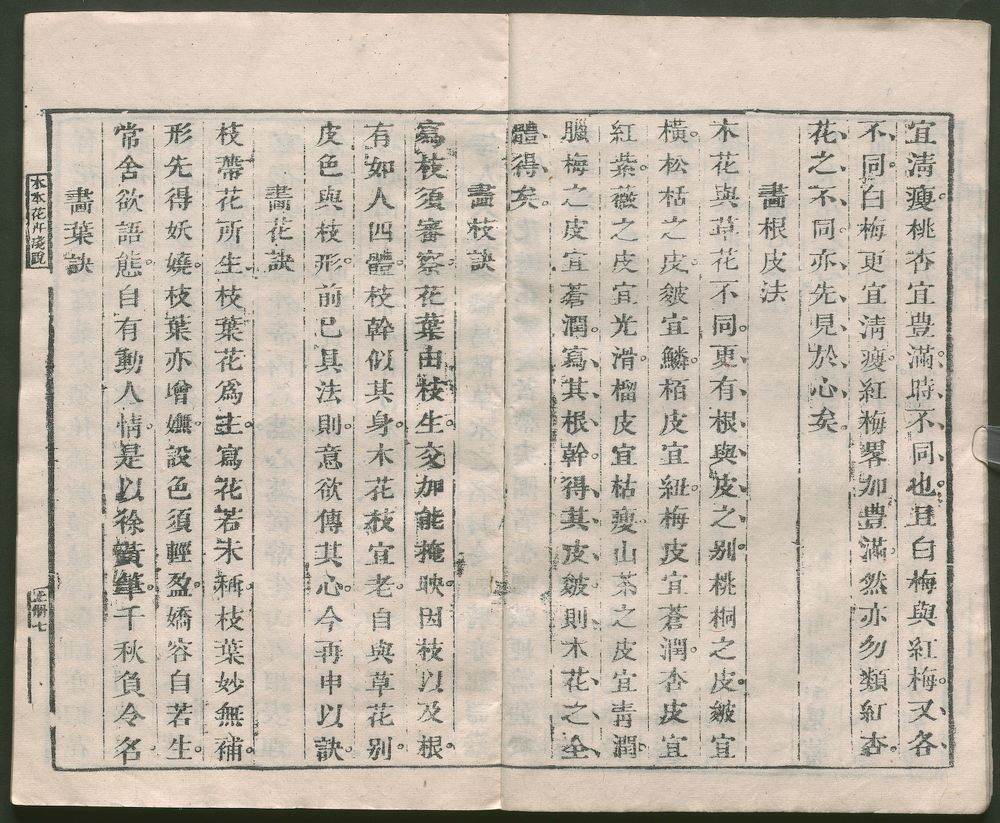 宜清瘦。桃杏宜豊滿。時不同也。且白梅與紅梅。又各
不同。白梅更宜清瘦。紅梅畧加豊滿。然亦勿類紅杏。
花之不同。亦先見於心矣。
畫根皮法
木花與草花不同。更有根與皮之別。桃桐之皮。皴宜
橫。松枯之皮。皴宜鱗。栢皮宜紐。梅皮宜蒼潤。杏皮宜
紅。紫薇之皮宜光滑。榴皮宜枯瘦。山茶之皮宜青潤。
臘梅之皮宜蒼潤。寫其根幹。得其皮皴。則木花之全
體得矣。
畫枝訣
寫枝須審察。花葉由枝生。交加能掩映。因枝以及根。
有如人四體。枝幹似其身。木花枝宜老。自與草花别。
皮色與枝形。前已具法則。意欲傳其心。今再申以訣。
畫花訣
枝帶花所生。枝葉花爲主。寫花若未稱。枝葉妙無補。
形先得妖嬈。枝葉亦增嫵。設色須輕盈。嬌容自若生。
常舍欲語態。自有動人情。是以徐黃筆。千秋負令名
畫葉訣
木本花卉淺說
上冊七